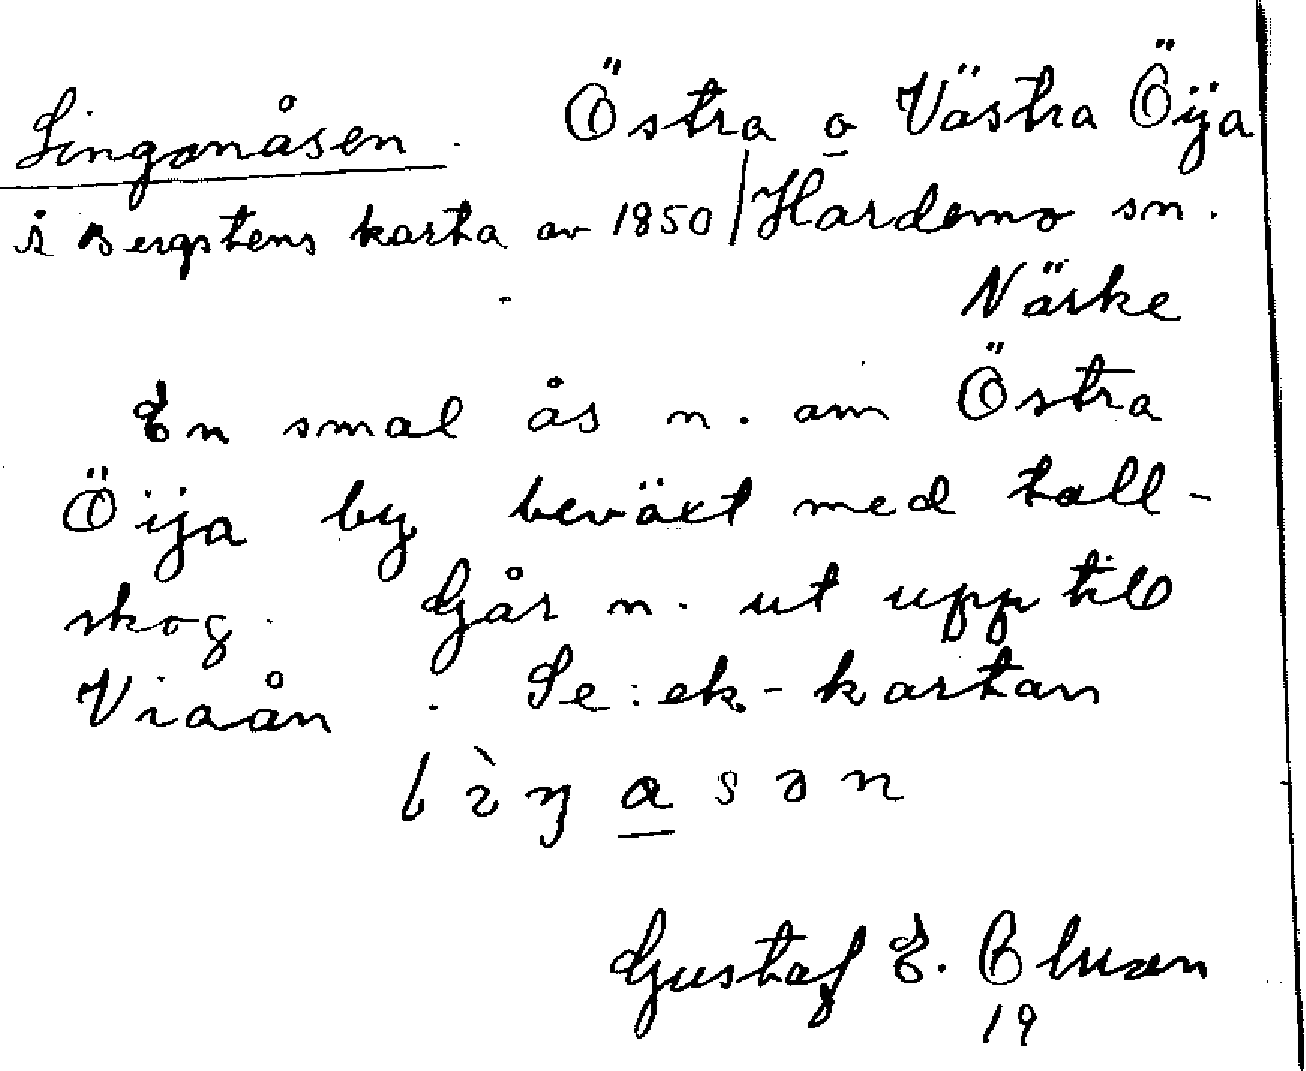 Lingonåsen. Östra o Västra Öija
i Bergstens karta av 1850 / Hardemo sn.
Närke
En smal ås n. om Östra
Öija by beväxt med tall-
skog. Går n. ut upp till
Viaån. Se: ek-kartan
lìŋasən
Gustaf E.
19